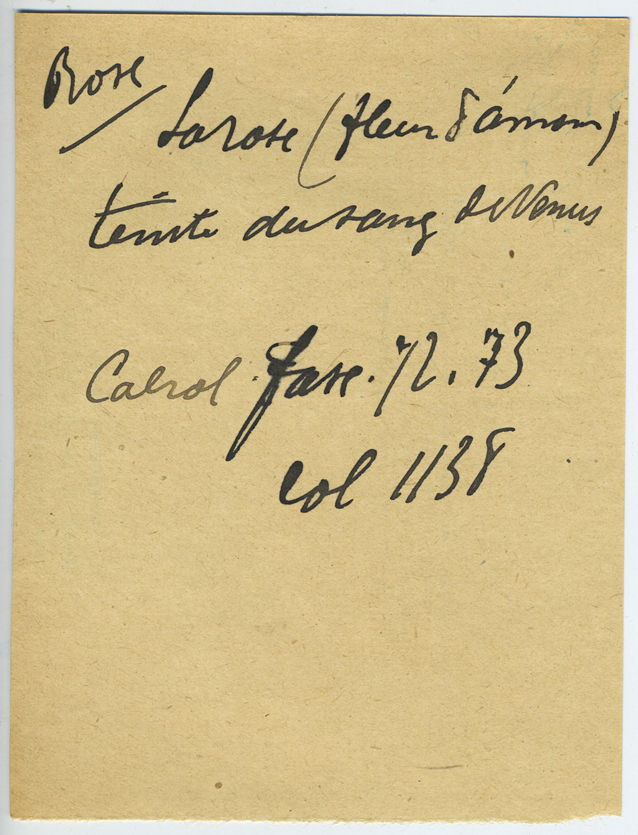 Rose
La rose (fleur d'amour)
teinte du sang de Venus
Cabrol. fasc. 72. 73
col 1138